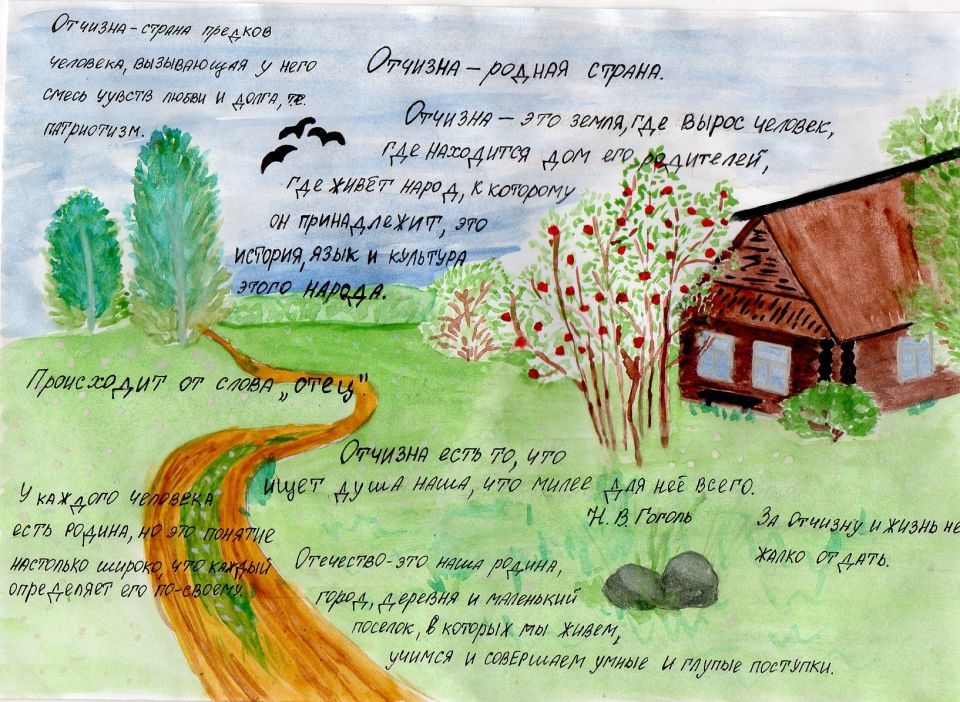 Отчизна – страна предков
человека, вызывающая у него
смесь чувств любви и долга, те.
патриотизм.
Отчизна – родная страна.
Отчизна – это земля, где вырос человек,
где находится дом его родителей,
где живёт народ, к которому
он принадлежит, это
история, язык и культура
этого народа.
Происходит от слова „отец".
Отчизна есть то, что
ищет душа наша, что милее для неё всего.
Н. В. Гоголь
У каждого человека
есть Родина, но это понятие
настолько широко, что каждый
определяет его по-своему.
За Отчизну и жизнь не
жалко отдать.
Отечество - это наша родина,
город, деревня и маленький
поселок, в которых мы живем,
учимся и совершаем умные и глупые поступки.